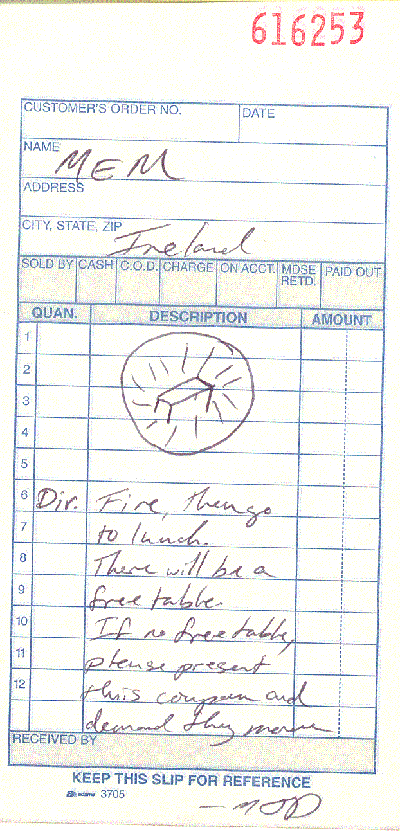 616253
CUSTOMER'S ORDER NO. DATE
NAME MEM
ADDRESS
CITY, STATE, ZIP Ireland
SOLD BY CASH C.O.D. CHARGE ON ACCT. MDSE RETD. PAID OUT
QUAN. DESCRIPTION AMOUNT
1
2
3
4
5
6 Dir. Fire, then go
7 to lunch.
8 There will be a
9 free table.
10 If no free table,
11 please present
12 this coupon and
demand they
RECEIVED BY
KEEP THIS SLIP FOR REFERENCE
3705